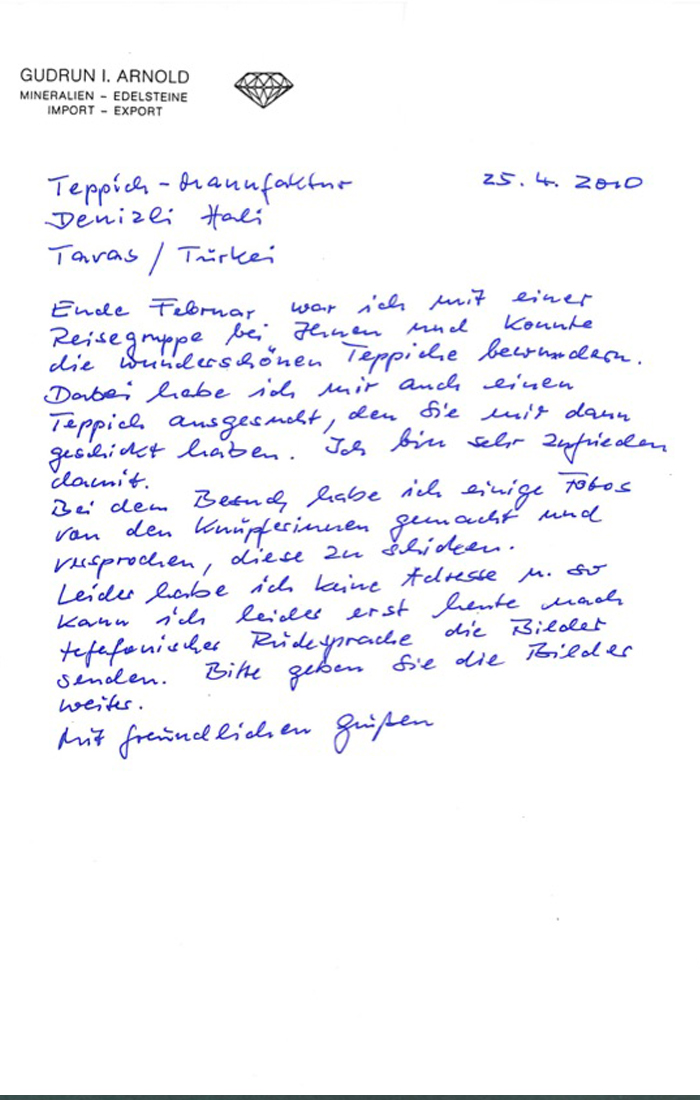 GUDRUN I. ARNOLD
MINERALIEN – EDELSTEINE
IMPORT – EXPORT
Teppich-Mannufaktur
25.4.2010
Denizli Hali
Tavas / Türkei
Ende Februar war ich mit einer
Reisegruppe bei Ihnen und konnte
die wunderschönen Teppiche bewundern.
Dabei habe ich mir auch einen
Teppich ausgesucht, den Sie mir dann
geschickt haben. Ich bin sehr zufrieden
damit.
Bei dem Besuch habe ich einige Fotos
von den Knüpferinnen gemacht und
versprochen, diese zu schicken.
Leider habe ich keine Adresse u. so
kann ich leider erst heute nach
telefonischer Rücksprache die Bilder
senden. Bitte geben Sie die Bilder
weiter.
Mit freundlichen Grüßen